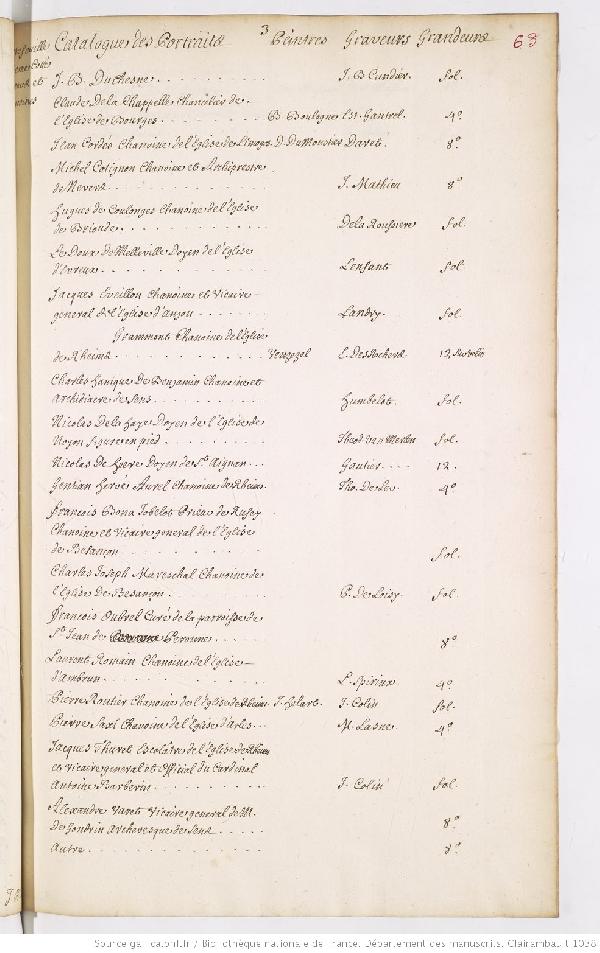 Catalogue des Portraits 3 Peintres Graveurs Grandeurs 63
J. B. Duchesne J. B. Cundier fol.
Claude De la Chappelle Chancelier de
l'Eglise de Bourges B. Boulogne Est. Gantrel 4º
Jean Cordes Chanoine de l'Eglise de Limoges D. DuMoustier Daret. 8º
Michel Cotignon Chanoine et Archiprestre
de Nevers J. Mathieu 8º
Hugues de Coulonges Chanoine de l'Eglise
de Brioude De la Roussiere fol.
Le Doux de Melleville Doyen de l'Eglise
d'Evreux Lenfant fol.
Jacques Eveillon Chanoine et Vicaire
general de l'Eglise d'Anjou Landry fol.
Grammont Chanoine de l'Eglise
de Rheims E. Desrochers 12
Charles Hanique De Benjamin Chanoine et
Archidiacre de Sens Humbelot. fol.
Nicolas De la Haye Doyen de l'Eglise de
Noyon figure en pied Theod van Merlen fol.
Nicolas De Hoere Doyen de St. Aignan Gautier 12.
Gentian Herve Aurel Chanoine de Rheims Tho. De Leu 4º
François Bona Jobelot Prieur de
Chanoine et Vicaire general de l'Eglise
de Besançon fol.
Charles Joseph Mareschal Chanoine de
l'Eglise De Besançon P. De Loisy fol.
François Oubrel Curé de la parroisse de
St. Jean de Peronne 8º
Laurent Romain Chanoine de l'Eglise
d'Ambrun L. Spirinx 4º
Pierre Routier Chanoine de l'Eglise de Rheims J. Helart. J. Colin fol.
Pierre Saxi Chanoine de l'Eglise d'Arles M. Lasne 4º
Jacques Thuret Escolâtre de l'Eglise de Rheims
et Vicaire general et Official du Cardinal
Antoine Barberin J. Colin fol.
Alexandre Varet Vicaire general de M.
De Gondrin Archevesque de Sens 8º
Autre 8º
Source gallica.bnf.fr / Bibliothèque nationale de France. Département des manuscrits. Clairambault 1038